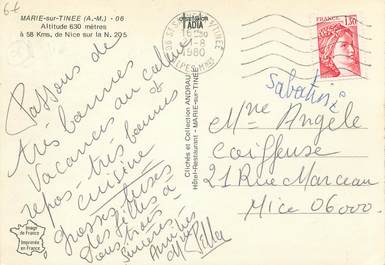 MARIE-sur-TINEE (A.-M.) - 06
Altitude 630 mètres
à 58 Kms, de Nice sur la N. 205
Passons de
très bonnes
Vacances au calme
repos - très bonne
cuisine
grosses bises
des filles à
tous très
sincères
Amitiés
Clichés et Collection ANDRAU
Hôtel-Restaurant - MARIE-sur-TINEE
16 30
1-8
1980
FRANCE
1,30
Sabatini
Mme Angèle
Coiffeuse
21 Rue Marceau
Nice 06000.
Image
de France
Imprimée
en France